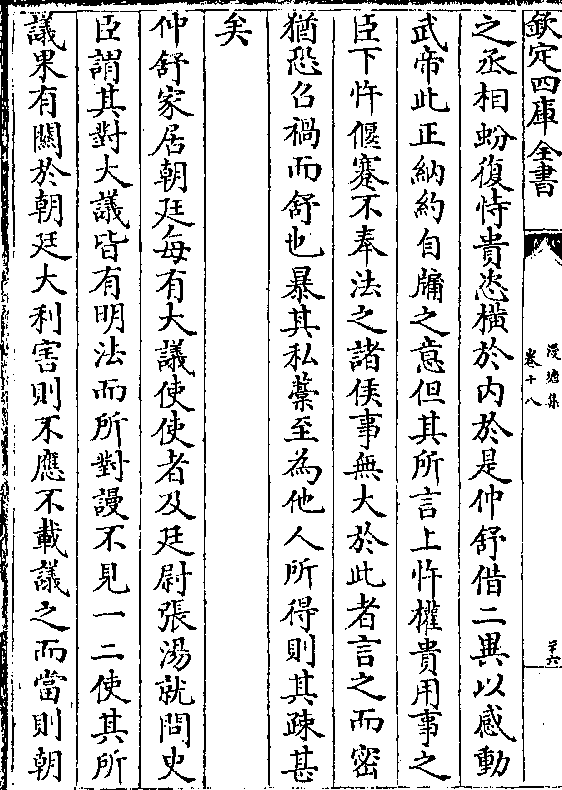 欽定四庫全書
漫塘集
卷十八
之丞相蚡復恃貴恣横於内於是仲舒借二異以感動
武帝此正納約自牖之意但其所言上忤權貴用事之
臣下忤偃蹇不奉法之諸侯事無大於此者言之而密
猶恐召禍而舒也暴其私藁至為他人所得則其疎甚
矣
仲舒家居朝廷每有大議使使者及廷尉張湯就問史
臣謂其對大議皆有明法而所對謾不見一二使其所
議果有關於朝廷大利害則不應不載議之而當則朝